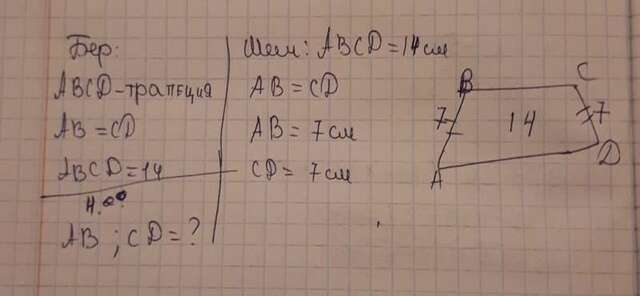 Бер:
ABCD-трапеция
AB = CD
ABCD = 14
Н.
AB ; CD = ?
Шеш: ABCD = 14 см
AB = CD
AB = 7 см
CD = 7 см
B
C
7
14
7
A
D